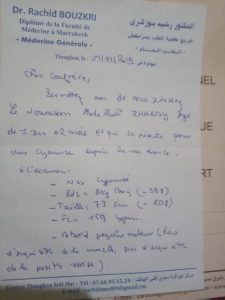 Dr. Rachid BOUZKRI
Diplômé de la Faculté de
Médecine à Marrakech
- Médecine Générale -
الدكتور رشيد بوزكري
خريج كلية الطب بمراكش
- الطب العام -
Tinghir, le
Cher Confrère,
Permettez moi de vous adresser
le Nourrisson Abdellah
de 1 an 02 mois et qui se présente pour
une cyanose depuis la naissance.
à l'examen:
- Nrs cyanosé
- Pds = 8kg
- Taille: 73 cm (- 2DS)
- FC = 159 bpm.
- Retard psychomoteur (Pas
d'acquisition de la marche, pas d'acquisition
de la position assise).
Tel : 07.66.95.15.24